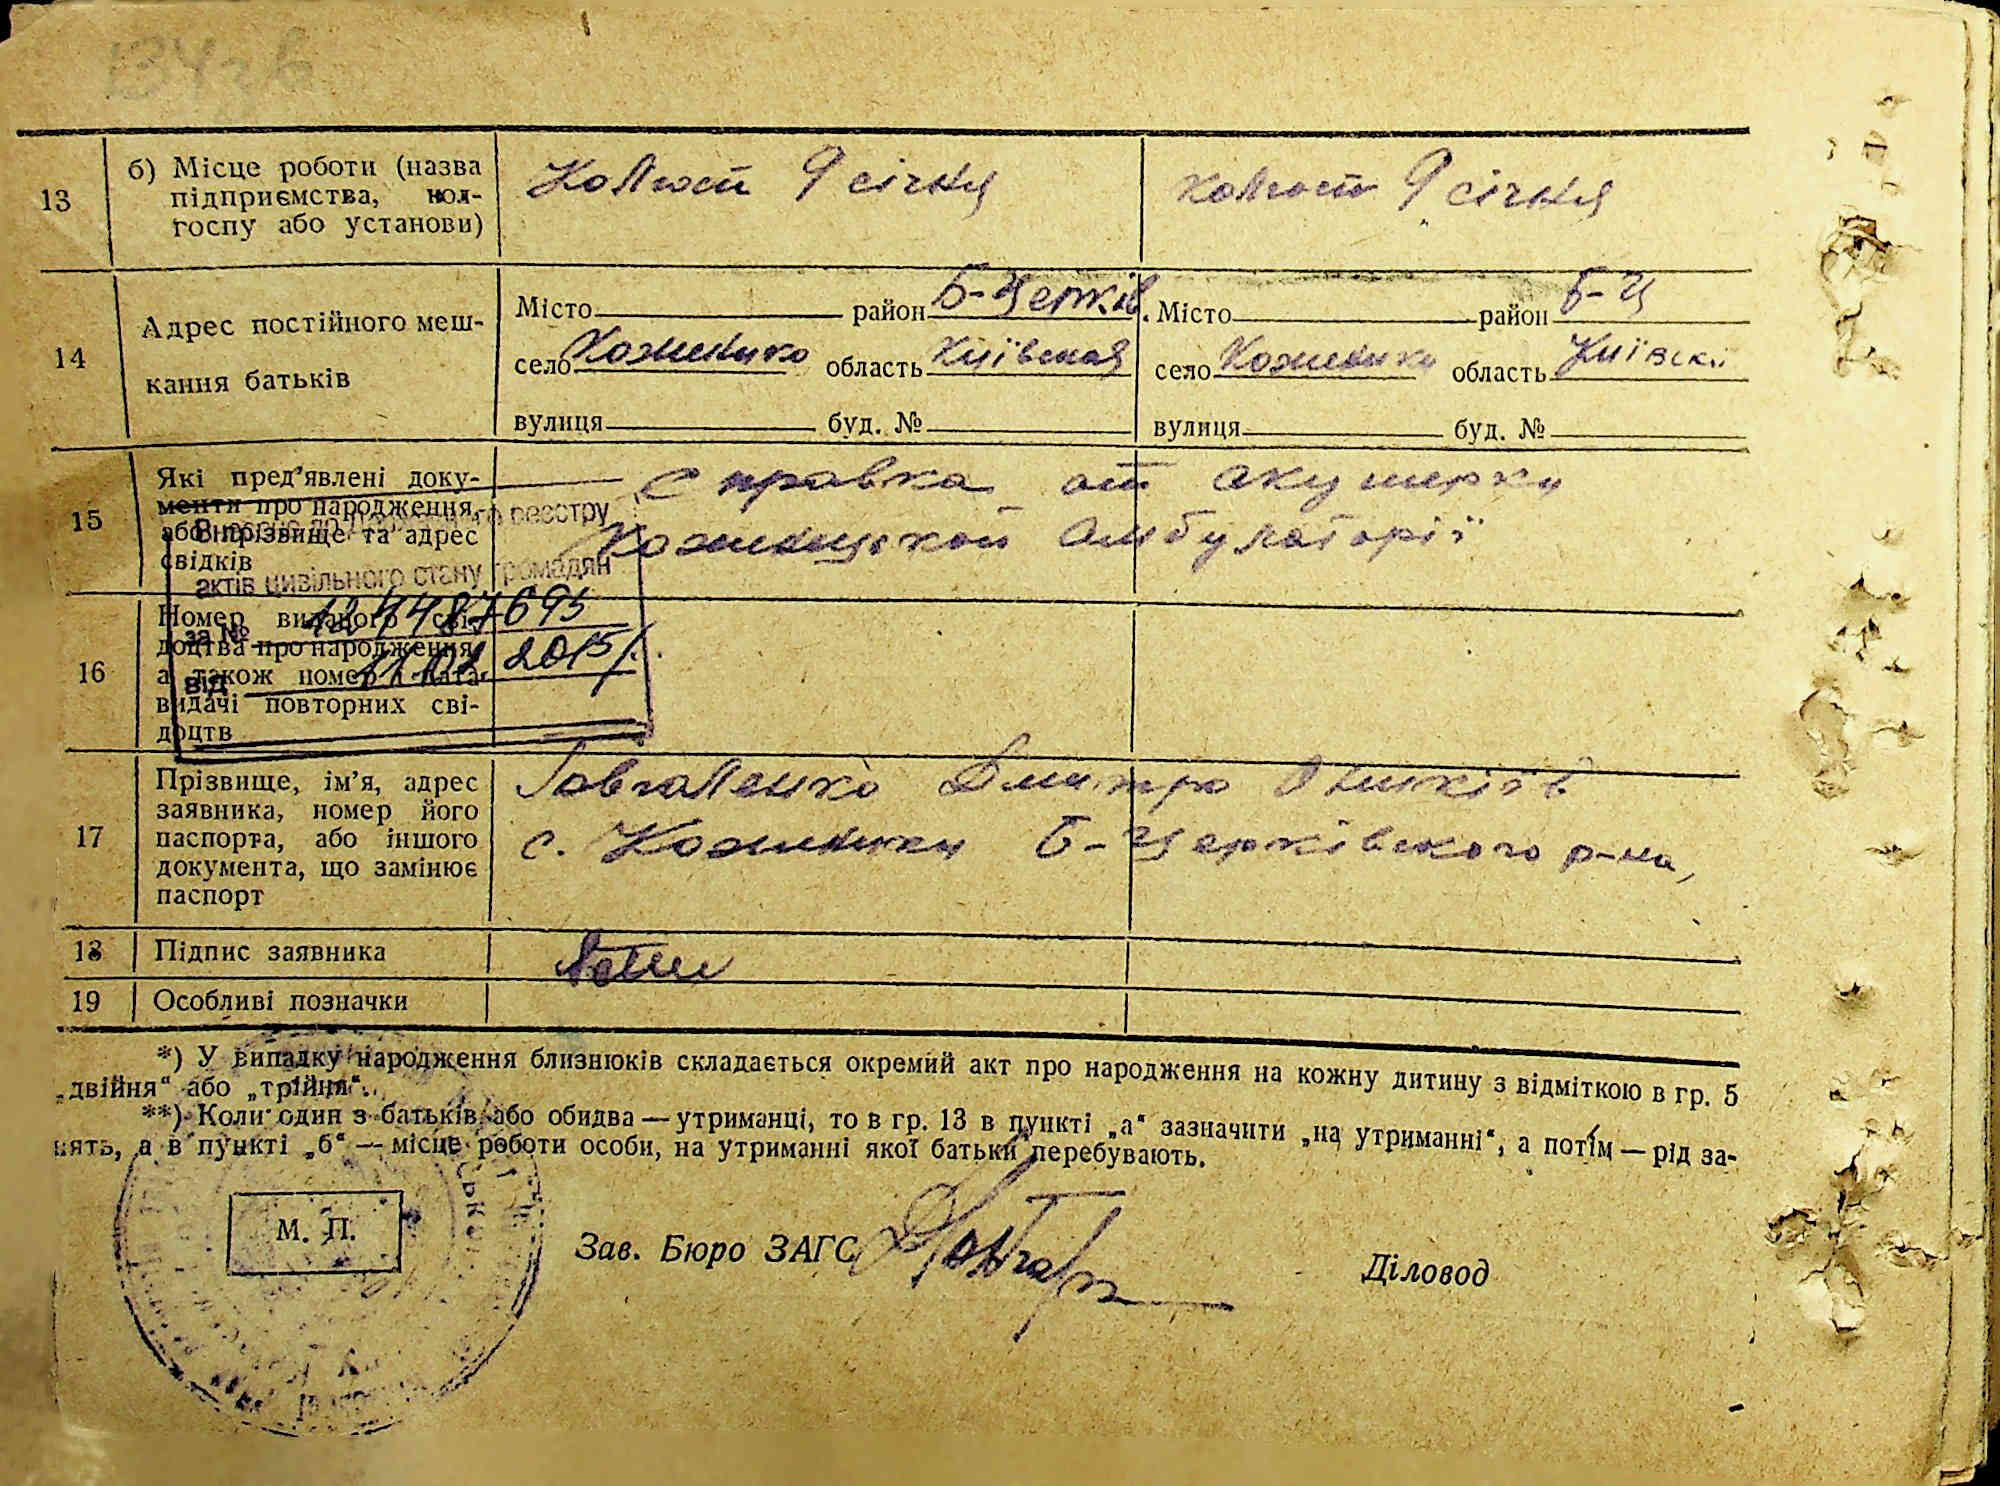 134зв
13
б) Місце роботи (назва
підприємства, кол-
госпу або установи)
Колгосп 9 січня
колгосп 9 січня
14
Адрес постійного меш-
кання батьків
Місто район Б-Церків.
село область Київская
вулиця буд. №
Місто район Б-Ц
село область
вулиця буд. №
15
Які пред'явлені доку-
менти про народження,
або прізвище та адрес
свідків
справка от акушерки
амбулаторії
державного реєстру
актів цивільного стану громадян
за №
від 2015р.
16
Номер виданого сві-
доцтва про народження,
а також номер і дата
видачі повторних сві-
доцтв
17
Прізвище, ім'я, адрес
заявника, номер його
паспорта, або іншого
документа, що замінює
паспорт
Дмитро
с. Б-Церківского р-на,
18
Підпис заявника
19
Особливі позначки
*) У випадку народження близнюків складається окремий акт про народження на кожну дитину з відміткою в гр. 5
„двійня“ або „трійня“.
**) Коли один з батьків або обидва — утриманці, то в гр. 13 в пункті „а“ зазначити „на утриманні“, а потім — рід за-
нять, а в пункті „б“ — місце роботи особи, на утриманні якої батьки перебувають.
М. П.
Зав. Бюро ЗАГС
Діловод